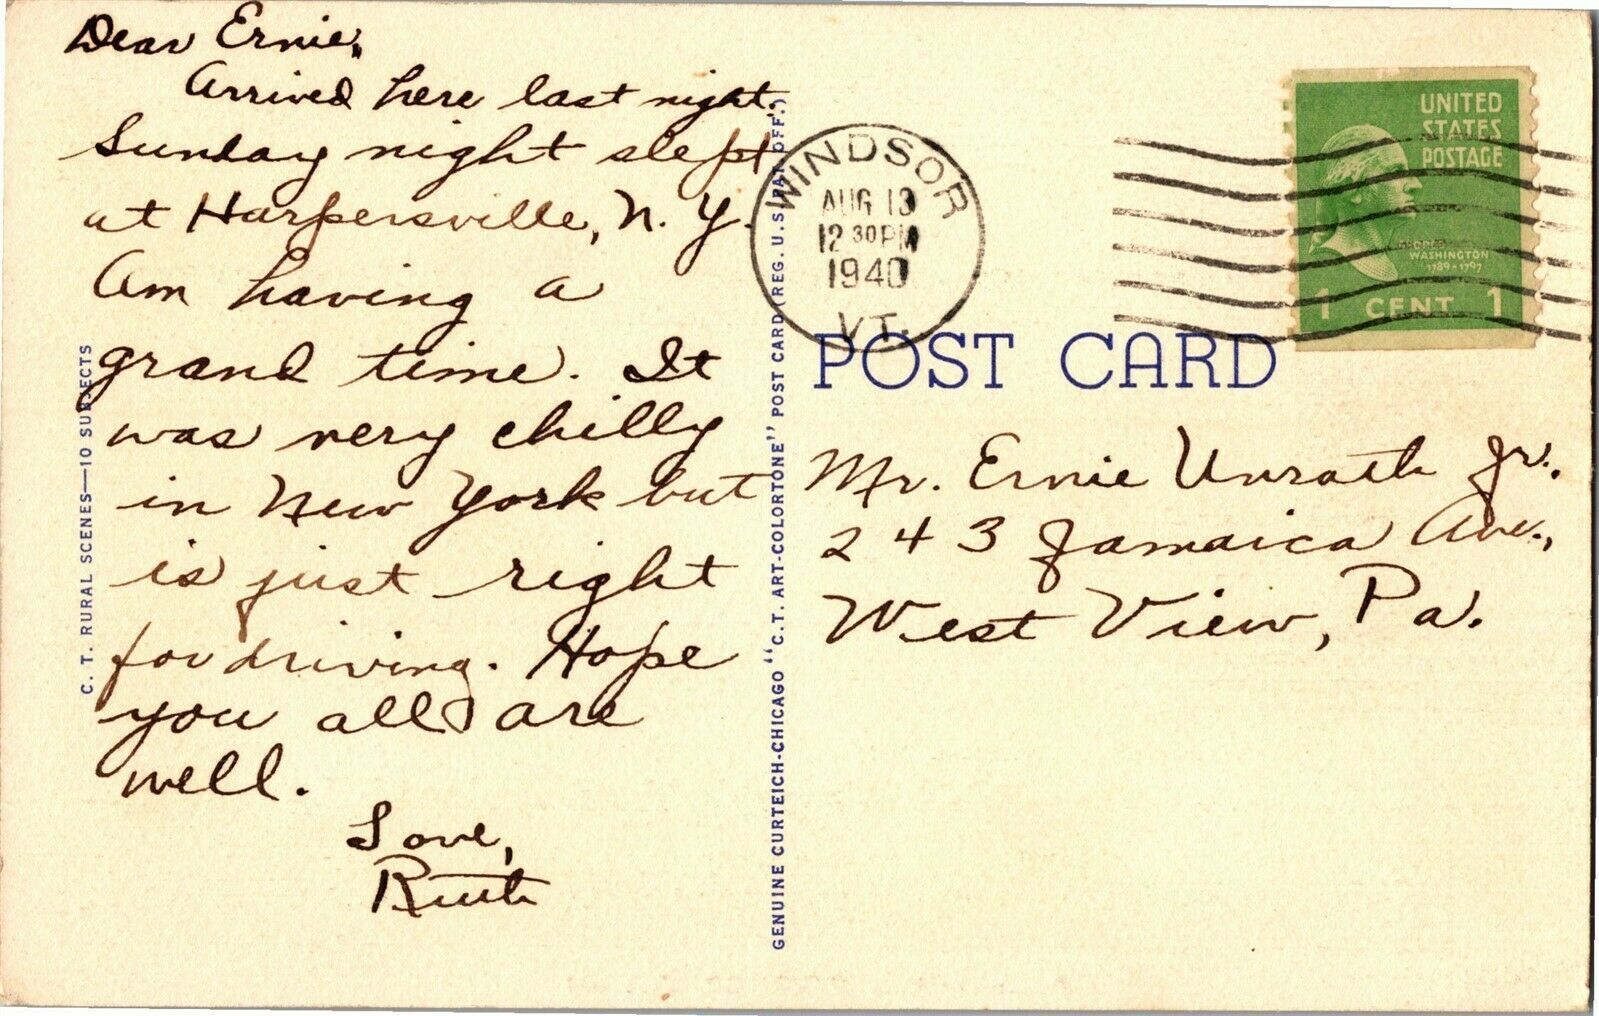 Dear Ernie,
Arrived here last night.
Sunday night slept
at Harpersville, N.Y.
Am having a
grand time. It
was very chilly
in New York but
is just right
for driving. Hope
you all are
well.
Love,
Ruth
C. T. RURAL SCENES—10 SUBJECTS
GENUINE CURTEICH-CHICAGO "C.T. ART-COLORTONE" POST CARD (REG. U.S. PAT. OFF.)
WINDSOR
AUG 13
12 30 PM
1940
VT.
UNITED
STATES
POSTAGE
GEORGE
WASHINGTON
1789-1797
1 CENT 1
POST CARD
Mr. Ernie Unrath Jr.,
243 Jamaica Ave.,
West View, Pa.